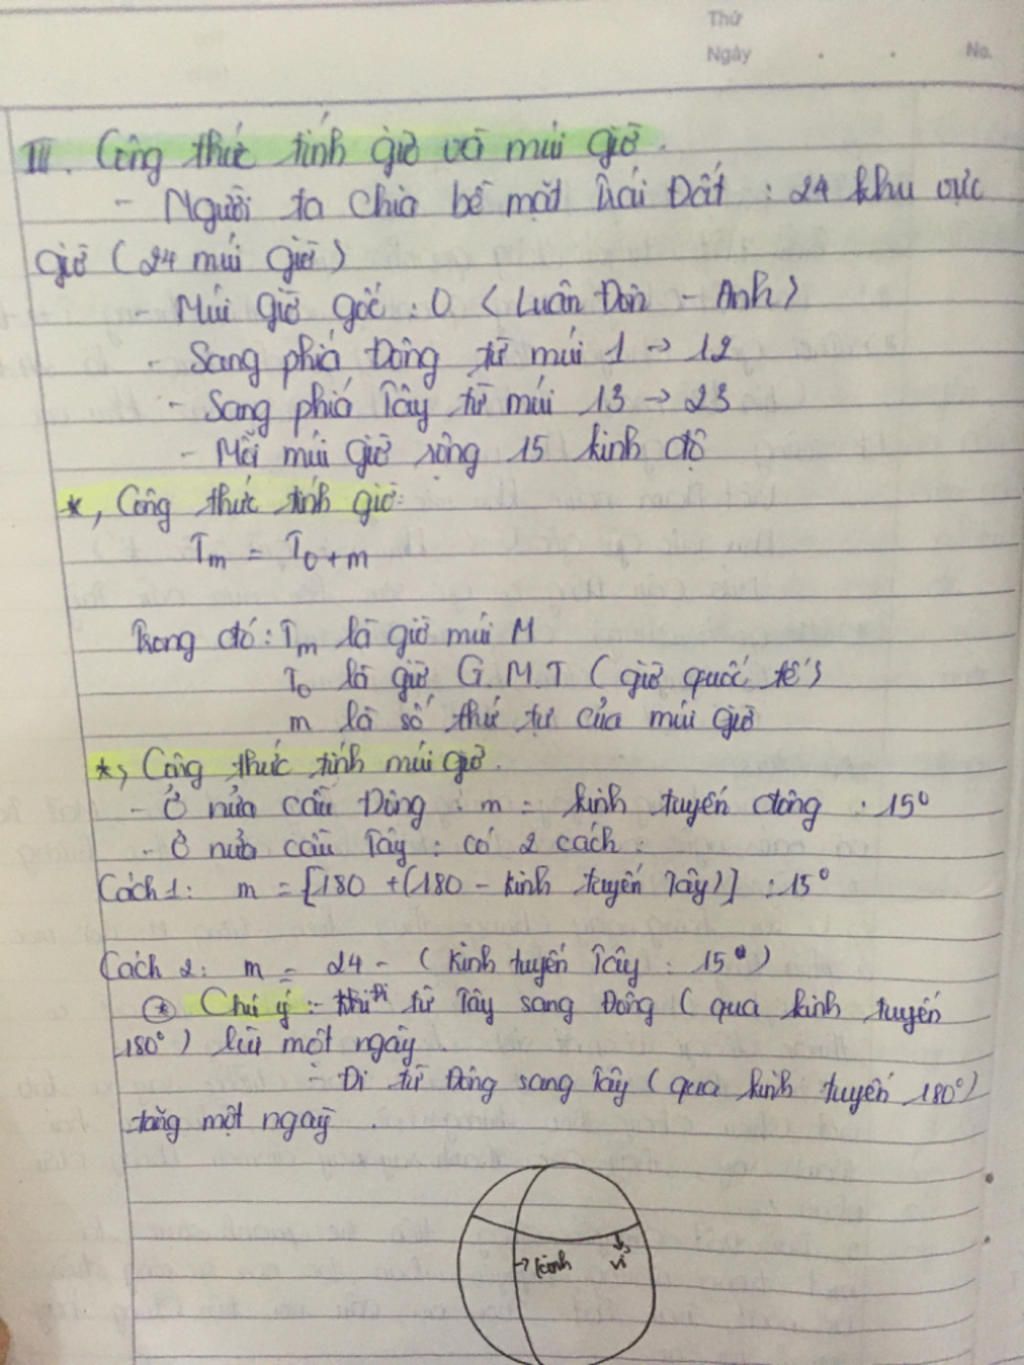 Thứ
Ngày
No.
III. Công thức tính giờ và múi giờ.
- Người ta chia bề mặt Trái Đất : 24 khu vực
giờ (24 múi giờ)
- Múi giờ gốc : 0 (Luân Đôn - Anh)
- Sang phía Đông từ múi 1 → 12
- Sang phía Tây từ múi 13 → 23
- Mỗi múi giờ rộng 15 kinh độ
*, Công thức tính giờ:
Tm = To+m
Trong đó: Tm là giờ múi M
To là giờ G.M.T (giờ quốc tế)
m là số thứ tự của múi giờ
*, Công thức tính múi giờ.
- Ở nửa cầu Đông : m = kinh tuyến đông : 15°
- Ở nửa cầu Tây : có 2 cách :
Cách 1: m = [180 + (180 - kinh tuyến Tây)] : 15°
Cách 2: m = 24 - (Kinh tuyến Tây : 15°)
* Chú ý : - Khi đi từ Tây sang Đông (qua kinh tuyến
180°) lùi một ngày.
- Đi từ Đông sang Tây (qua kinh tuyến 180°)
tăng một ngày.
→ kinh
vĩ